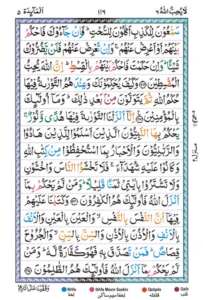 لَا يُحِبُّ اللّٰهُ ٦
١١٦
اَلْمَآئِدَة ٥
سَمّٰعُوْنَ لِلْكَذِبِ اَكّٰلُوْنَ لِلسُّحْتِ ؕ فَاِنْ جَآءُوْكَ فَاحْكُمْ
بَيْنَهُمْ اَوْ اَعْرِضْ عَنْهُمْ ۚ وَاِنْ تُعْرِضْ عَنْهُمْ فَلَنْ يَّضُرُّوْكَ
شَيْـًٔا ؕ وَاِنْ حَكَمْتَ فَاحْكُمْ بَيْنَهُمْ بِالْقِسْطِ ؕ اِنَّ اللّٰهَ يُحِبُّ
الْمُقْسِطِيْنَ ۝ وَكَيْفَ يُحَكِّمُوْنَكَ وَعِنْدَهُمُ التَّوْرٰىةُ فِيْهَا
حُكْمُ اللّٰهِ ثُمَّ يَتَوَلَّوْنَ مِنْۢ بَعْدِ ذٰلِكَ ؕ وَمَاۤ اُولٰٓئِكَ
بِالْمُؤْمِنِيْنَ ۝ اِنَّاۤ اَنْزَلْنَا التَّوْرٰىةَ فِيْهَا هُدًى وَّنُوْرٌ ۚ يَحْكُمُ
بِهَا النَّبِيُّوْنَ الَّذِيْنَ اَسْلَمُوْا لِلَّذِيْنَ هَادُوْا
وَالرَّبّٰنِيُّوْنَ وَالْاَحْبَارُ بِمَا اسْتُحْفِظُوْا مِنْ كِتٰبِ اللّٰهِ
وَكَانُوْا عَلَيْهِ شُهَدَآءَ ۚ فَلَا تَخْشَوُا النَّاسَ وَاخْشَوْنِ
وَلَا تَشْتَرُوْا بِاٰيٰتِيْ ثَمَنًا قَلِيْلًا ؕ وَمَنْ لَّمْ يَحْكُمْ
بِمَاۤ اَنْزَلَ اللّٰهُ فَاُولٰٓئِكَ هُمُ الْكٰفِرُوْنَ ۝ وَكَتَبْنَا عَلَيْهِمْ
فِيْهَاۤ اَنَّ النَّفْسَ بِالنَّفْسِ ۙ وَالْعَيْنَ بِالْعَيْنِ وَالْاَنْفَ
بِالْاَنْفِ وَالْاُذُنَ بِالْاُذُنِ وَالسِّنَّ بِالسِّنِّ ۙ وَالْجُرُوْحَ
قِصَاصٌ ؕ فَمَنْ تَصَدَّقَ بِهٖ فَهُوَ كَفَّارَةٌ لَّهٗ ؕ وَمَنْ
لَّمْ يَحْكُمْ بِمَاۤ اَنْزَلَ اللّٰهُ فَاُولٰٓئِكَ هُمُ الظّٰلِمُوْنَ ۝